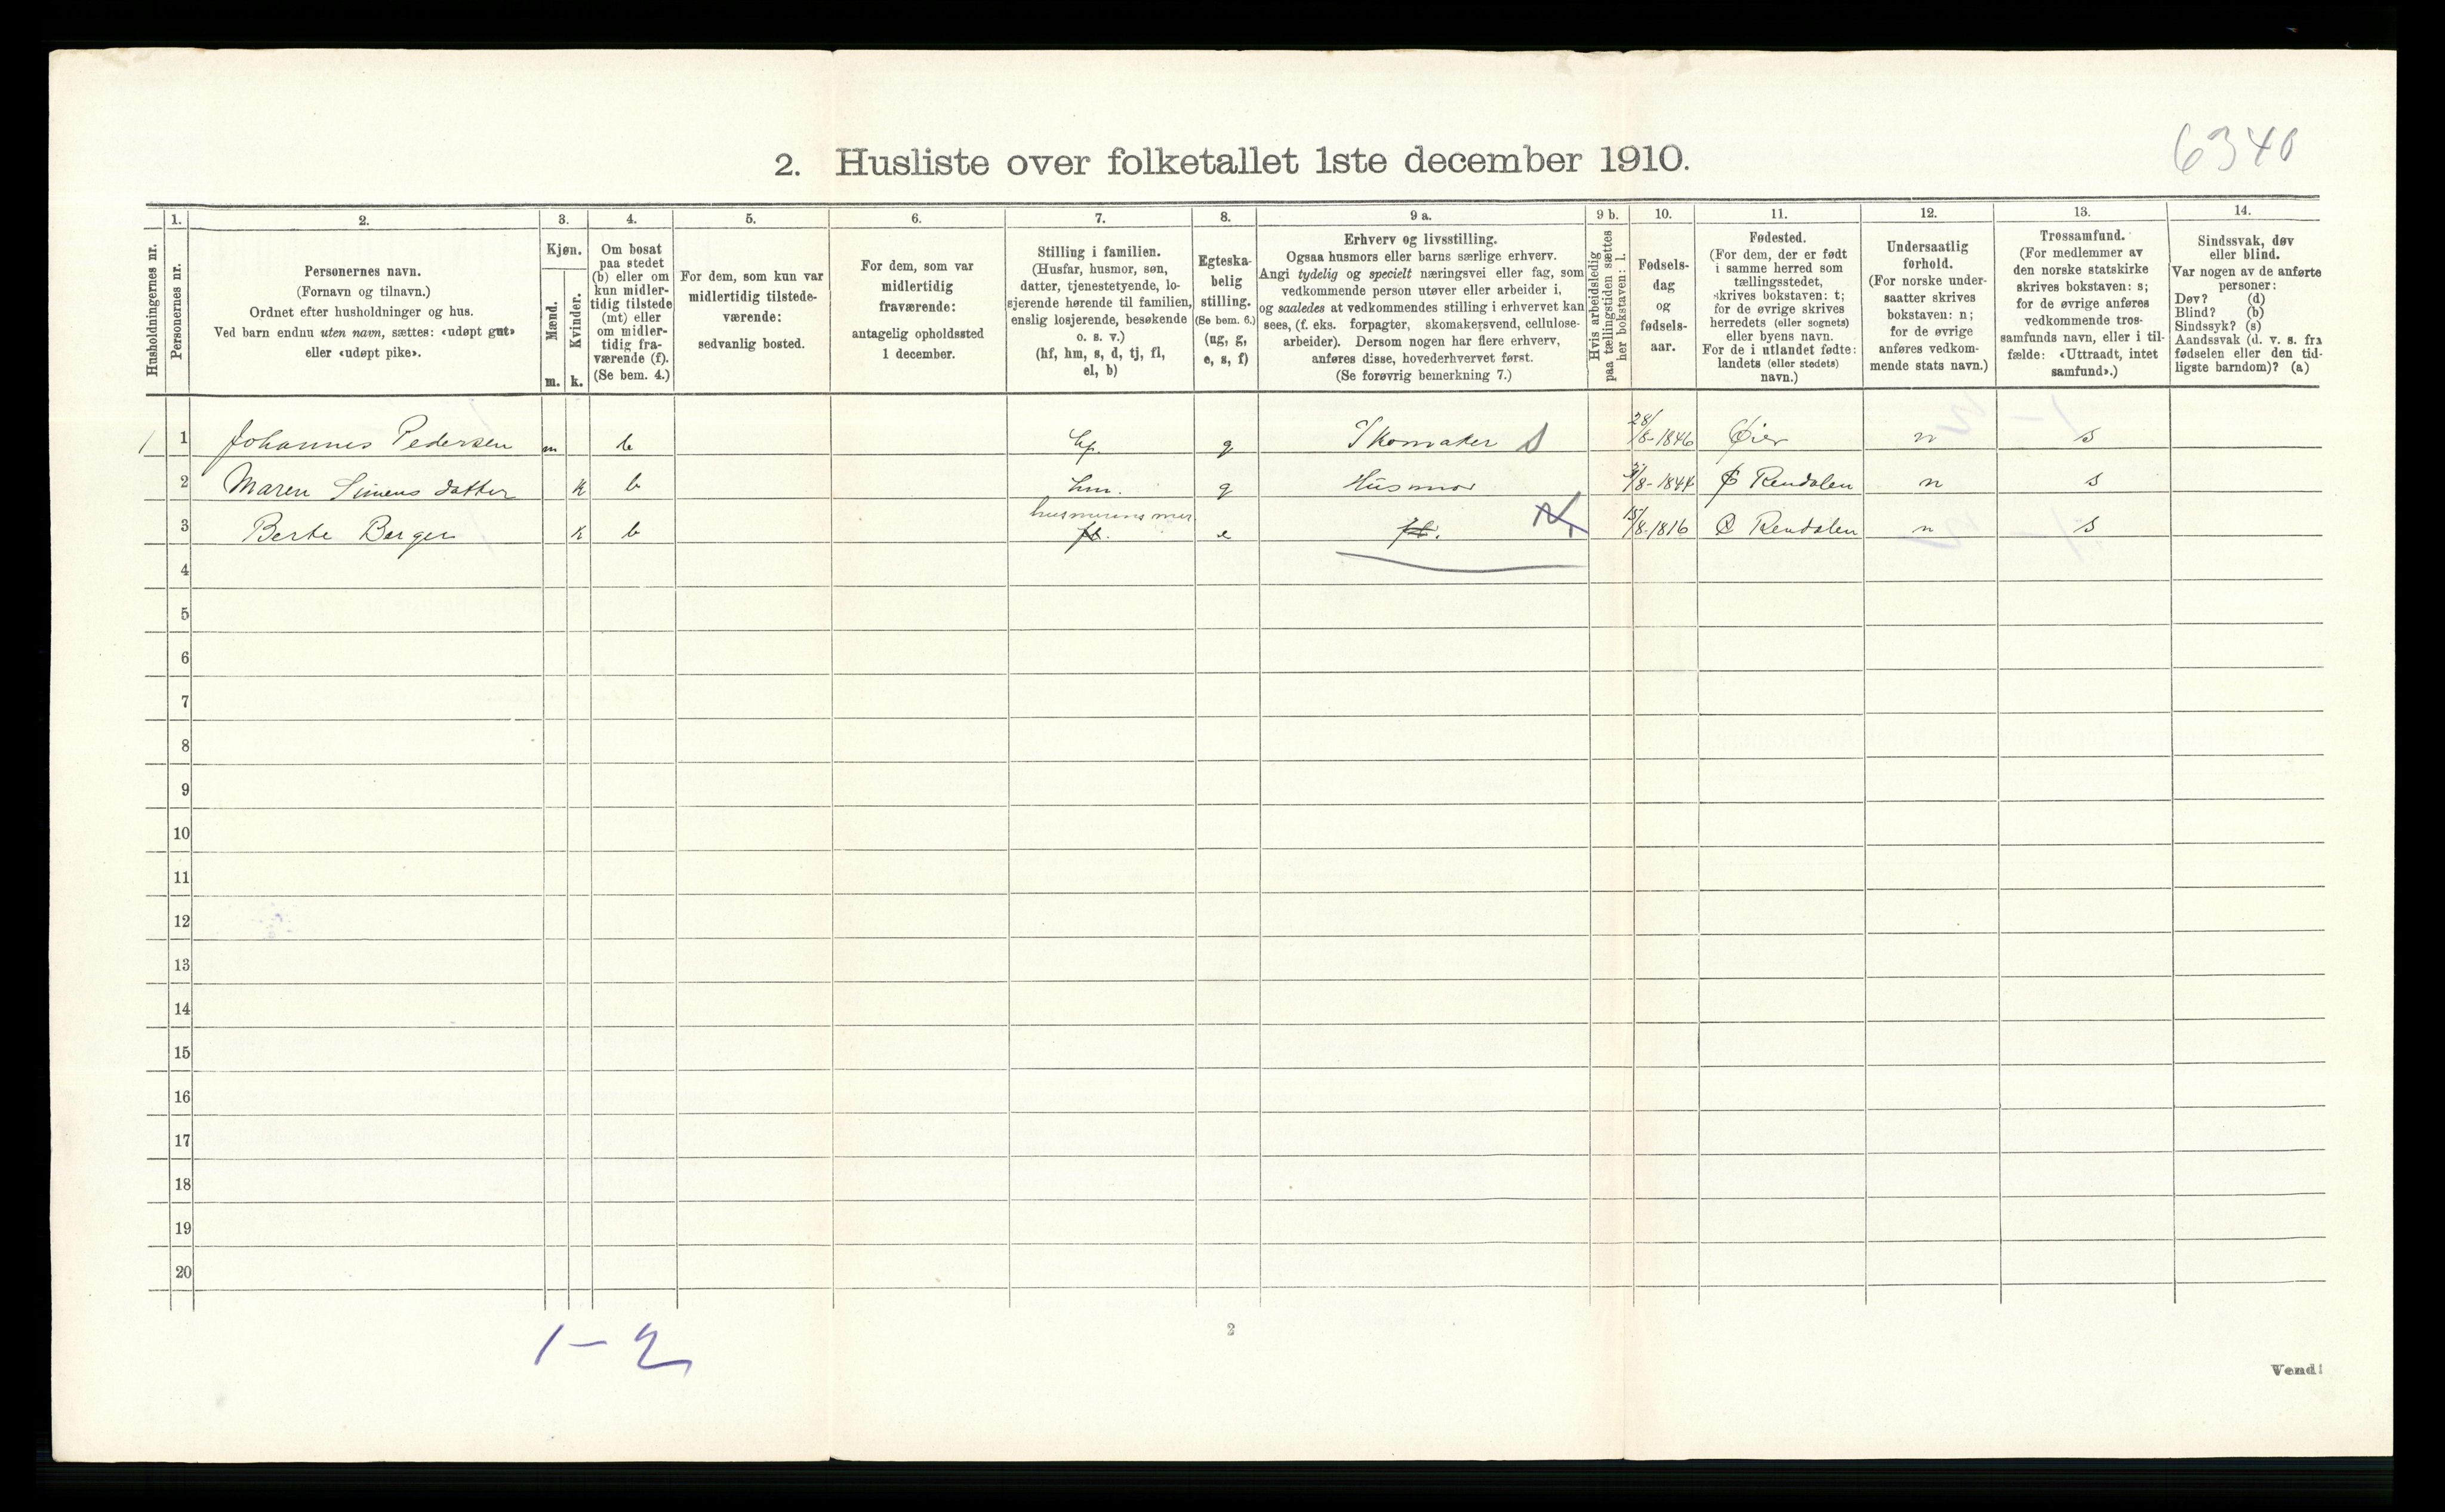 6340
2. Husliste over folketallet 1ste december 1910.
Husholdningernes nr.
1.
Personernes nr.
2.
Personernes navn.
(Fornavn og tilnavn.)
Ordnet efter husholdninger og hus.
Ved barn endnu uten navn, sættes: «udøpt gut»
eller «udøpt pike».
3.
Kjøn.
Mænd.
Kvinder.
m. k.
4.
Om bosat
paa stedet
(b) eller om
kun midler-
tidig tilstede
(mt) eller
om midler-
tidig fra-
værende (f).
(Se bem. 4.)
5.
For dem, som kun var
midlertidig tilstede-
værende:
sedvanlig bosted.
6.
For dem, som var
midlertidig
fraværende:
antagelig opholdssted
1 december.
7.
Stilling i familien.
(Husfar, husmor, søn,
datter, tjenestetyende, lo-
sjerende hørende til familien,
enslig losjerende, besøkende
o. s. v.)
(hf, hm, s, d, tj, fl,
el, b)
8.
Egteska-
belig
stilling.
(Se bem. 6.)
(ug, g,
e, s, f)
9 a.
Erhverv og livsstilling.
Ogsaa husmors eller barns særlige erhverv.
Angi tydelig og specielt næringsvei eller fag, som
vedkommende person utøver eller arbeider i,
og saaledes at vedkommendes stilling i erhvervet kan
sees, (f. eks. forpagter, skomakersvend, cellulose-
arbeider). Dersom nogen har flere erhverv,
anføres disse, hovederhvervet først.
(Se forøvrig bemerkning 7.)
9 b.
Hvis arbeidsledig
paa tællingstiden sættes
her bokstaven: l.
10.
Fødsels-
dag
og
fødsels-
aar.
11.
Fødested.
(For dem, der er født
i samme herred som
tællingsstedet,
skrives bokstaven: t;
for de øvrige skrives
herredets (eller sognets)
eller byens navn.
For de i utlandet fødte:
landets (eller stedets)
navn.)
12.
Undersaatlig
forhold.
(For norske under-
saatter skrives
bokstaven: n;
for de øvrige
anføres vedkom-
mende stats navn.)
13.
Trossamfund.
(For medlemmer av
den norske statskirke
skrives bokstaven: s;
for de øvrige anføres
vedkommende tros-
samfunds navn, eller i til-
fælde: «Uttraadt, intet
samfund».)
14.
Sindssvak, døv
eller blind.
Var nogen av de anførte
personer:
Døv? (d)
Blind? (b)
Sindssyk? (s)
Aandssvak (d. v. s. fra
fødselen eller den tid-
ligste barndom)? (a)
1 1 Johannes Pedersen m b hf. g Skomaker S 28/8-1846 Øier n s
2 Maren Simens datter k b hm. g Husmor /8-1844 Rendalen n s
husmorens mor
3 Berte Berger k b fl. e fl. N. 15/8-1816 Rendalen n s
4
5
6
7
8
9
10
11
12
13
14
15
16
17
18
19
20
1-2
2
Vend!